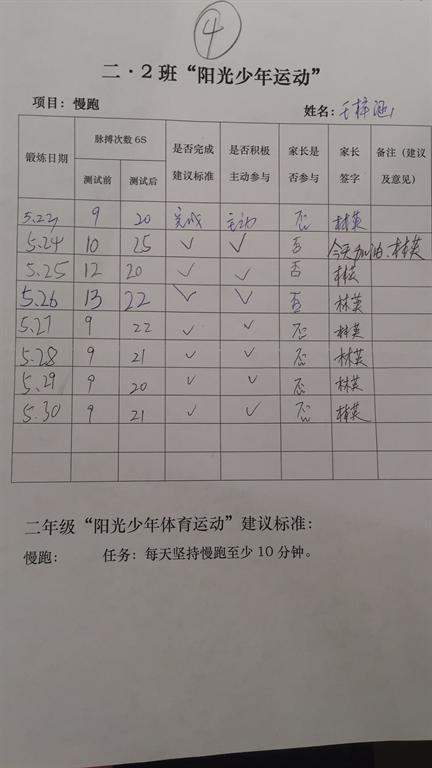 4
二·2班“阳光少年运动”
项目：慢跑 姓名：王梓涵
锻炼日期 脉搏次数 6S 是否完成建议标准 是否积极主动参与 家长是否参与 家长签字 备注（建议及意见）
测试前 测试后
5.23 9 20 完成 主动 否 林英
5.24 10 25 ✓ ✓ 否 今天加油、林英
5.25 12 20 ✓ ✓ 否 林英
5.26 13 22 ✓ ✓ 否 林英
5.27 9 22 ✓ ✓ 否 林英
5.28 9 21 ✓ ✓ 否 林英
5.29 9 20 ✓ ✓ 否 林英
5.30 9 21 ✓ ✓ 否 林英
二年级“阳光少年体育运动”建议标准：
慢跑： 任务：每天坚持慢跑至少 10 分钟。